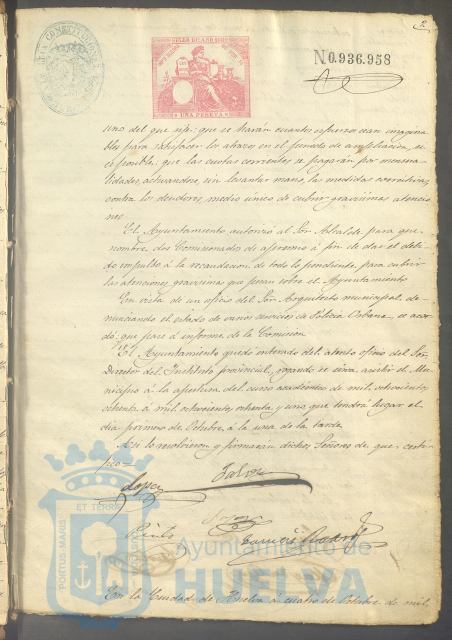 2
N0.936.958
UNA PESETA
uno del que rije: que se harán cuantos esfuerzos sean imagina-
bles para satisfacer los atrasos en el periodo de ampliacion, si
es posible: que las cuotas corrientes se pagarán por mensua-
lidades, activandose, sin levantar mano, las medidas coercitivas
contra los deudores, medio único de cubrir gravisimas atencio-
nes.
El Ayuntamiento autorizó al Sor. Alcalde para que
nombre dos Comisionados de apremio á fin de dar el debi-
do impulso á la recaudacion de todo lo pendiente, para cubrir
las atenciones gravisimas que pesan sobre el Ayuntamiento
En vista de un oficio del Sor. Arquitecto municipal, de-
nunciando el estado de varios servicios de Policia Urbana, se acor-
dó: que pase á informe de la Comision
El Ayuntamiento quedó enterado del atento oficio del Sor.
Director del Instituto provincial, rogando se sirva asistir el Mu-
nicipio á la apertura del curso académico de mil ochocientos
ochenta á mil ochocientos ochenta y uno, que tendrá lugar el
dia primero de Octubre á la una de la tarde
Asi lo resolvieron y firmarán dichos Señores de que certi-
fico—
Lopez
Pinto
PORTUS MARIS ET TERRAE
Ayuntamiento de
HUELVA
En la Ciudad de Huelva á cuatro de Octubre de mil